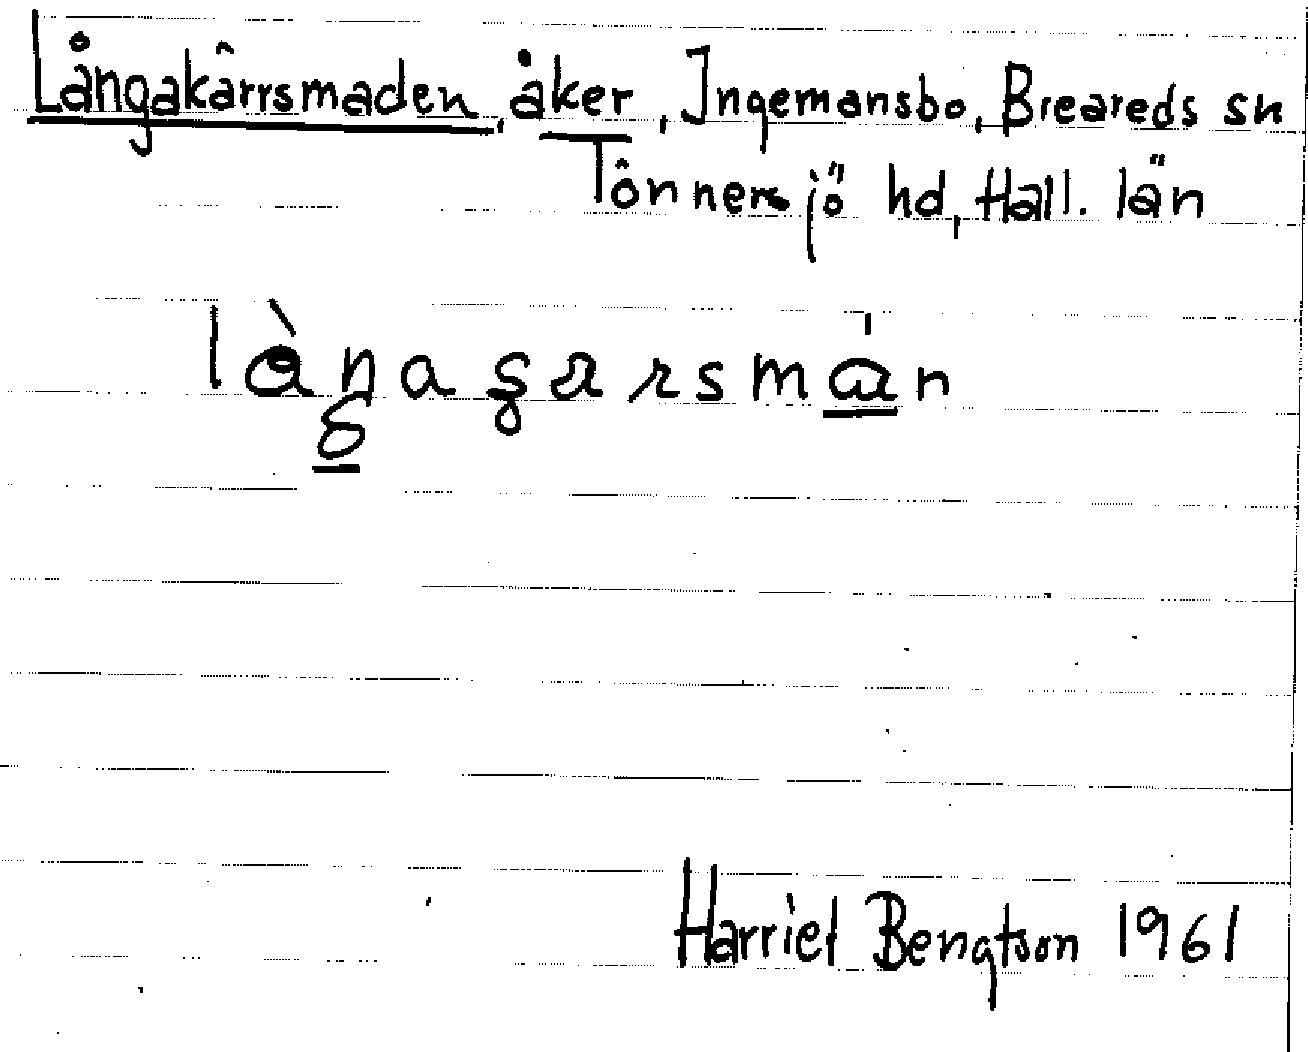 Långakärrsmaden, åker, Ingemansbo, Breareds sn
Tönnersjö hd, Hall. län
Harriet Bengtson 1961